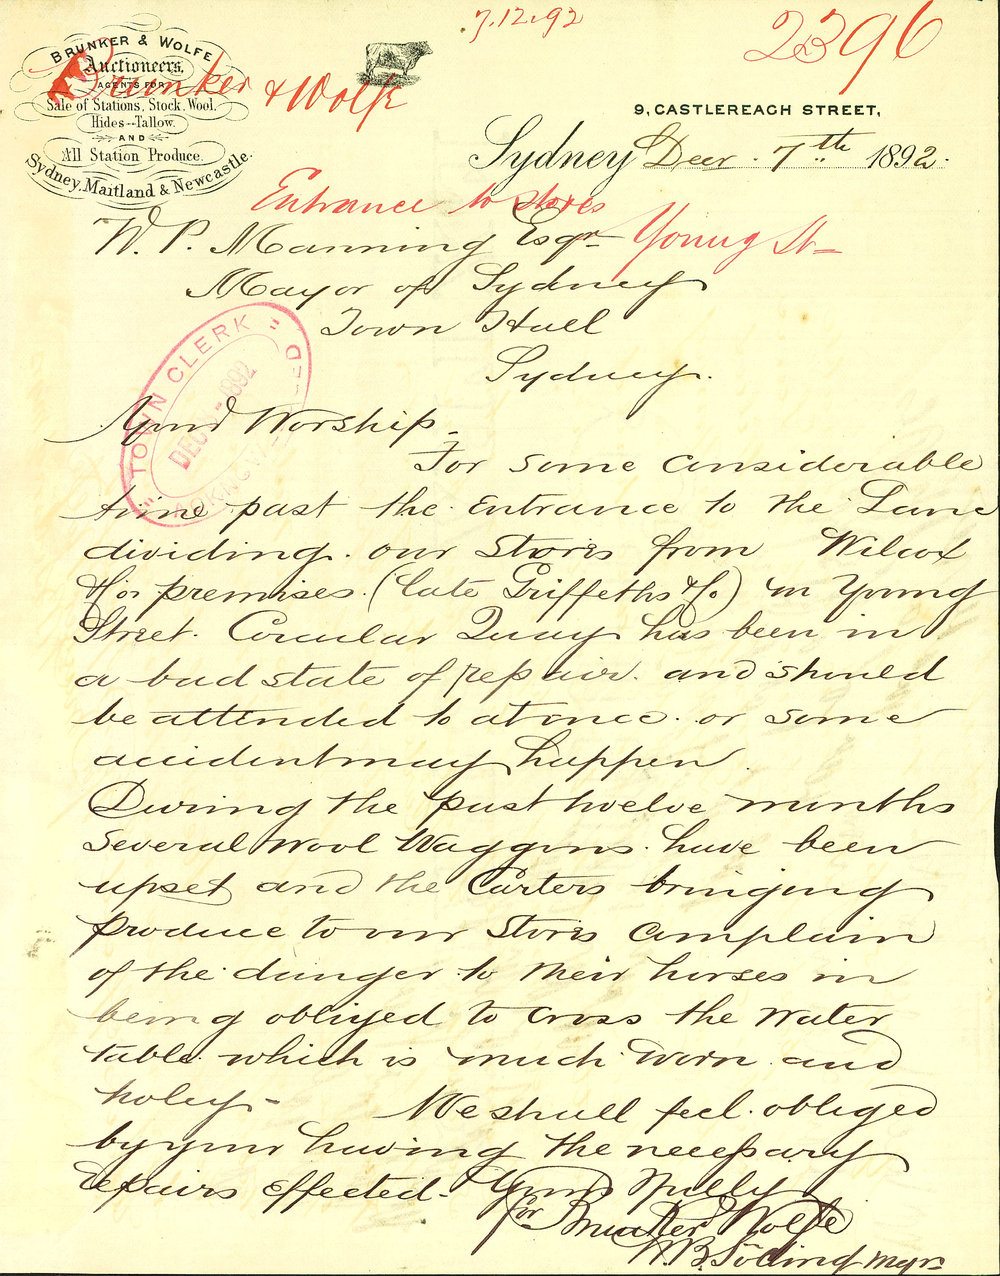 7.12.92
2396
BRUNKER & WOLFE
Auctioneers,
AGENTS FOR
Sale of Stations, Stock, Wool,
Hides--Tallow,
AND
All Station Produce.
Sydney, Maitland & Newcastle.
Brunker & Wolfe
9, CASTLEREAGH STREET,
Sydney Decr. 7th 1892.
Entrance to stores
Young St
W. P. Manning Esqr
Mayor of Sydney
Town Hall
Sydney.
TOWN CLERK
DEC 1892
Your Worship
For some considerable
time past the entrance to the Lane
dividing our Stores from Wilcox
& Co's premises (late Griffeths & Co.) in Young
Street. Circular Quay has been in
a bad state of repair and should
be attended to at once or some
accident may happen
During the past twelve months
several wool Waggons have been
upset and the Carters bringing
produce to our Stores complain
of the danger to their horses in
being obliged to cross the water
table which is much worn and
holey - We shall feel obliged
by your having the necessary
repairs effected - Yours
for Brunker & Wolfe
W. B. Mgr